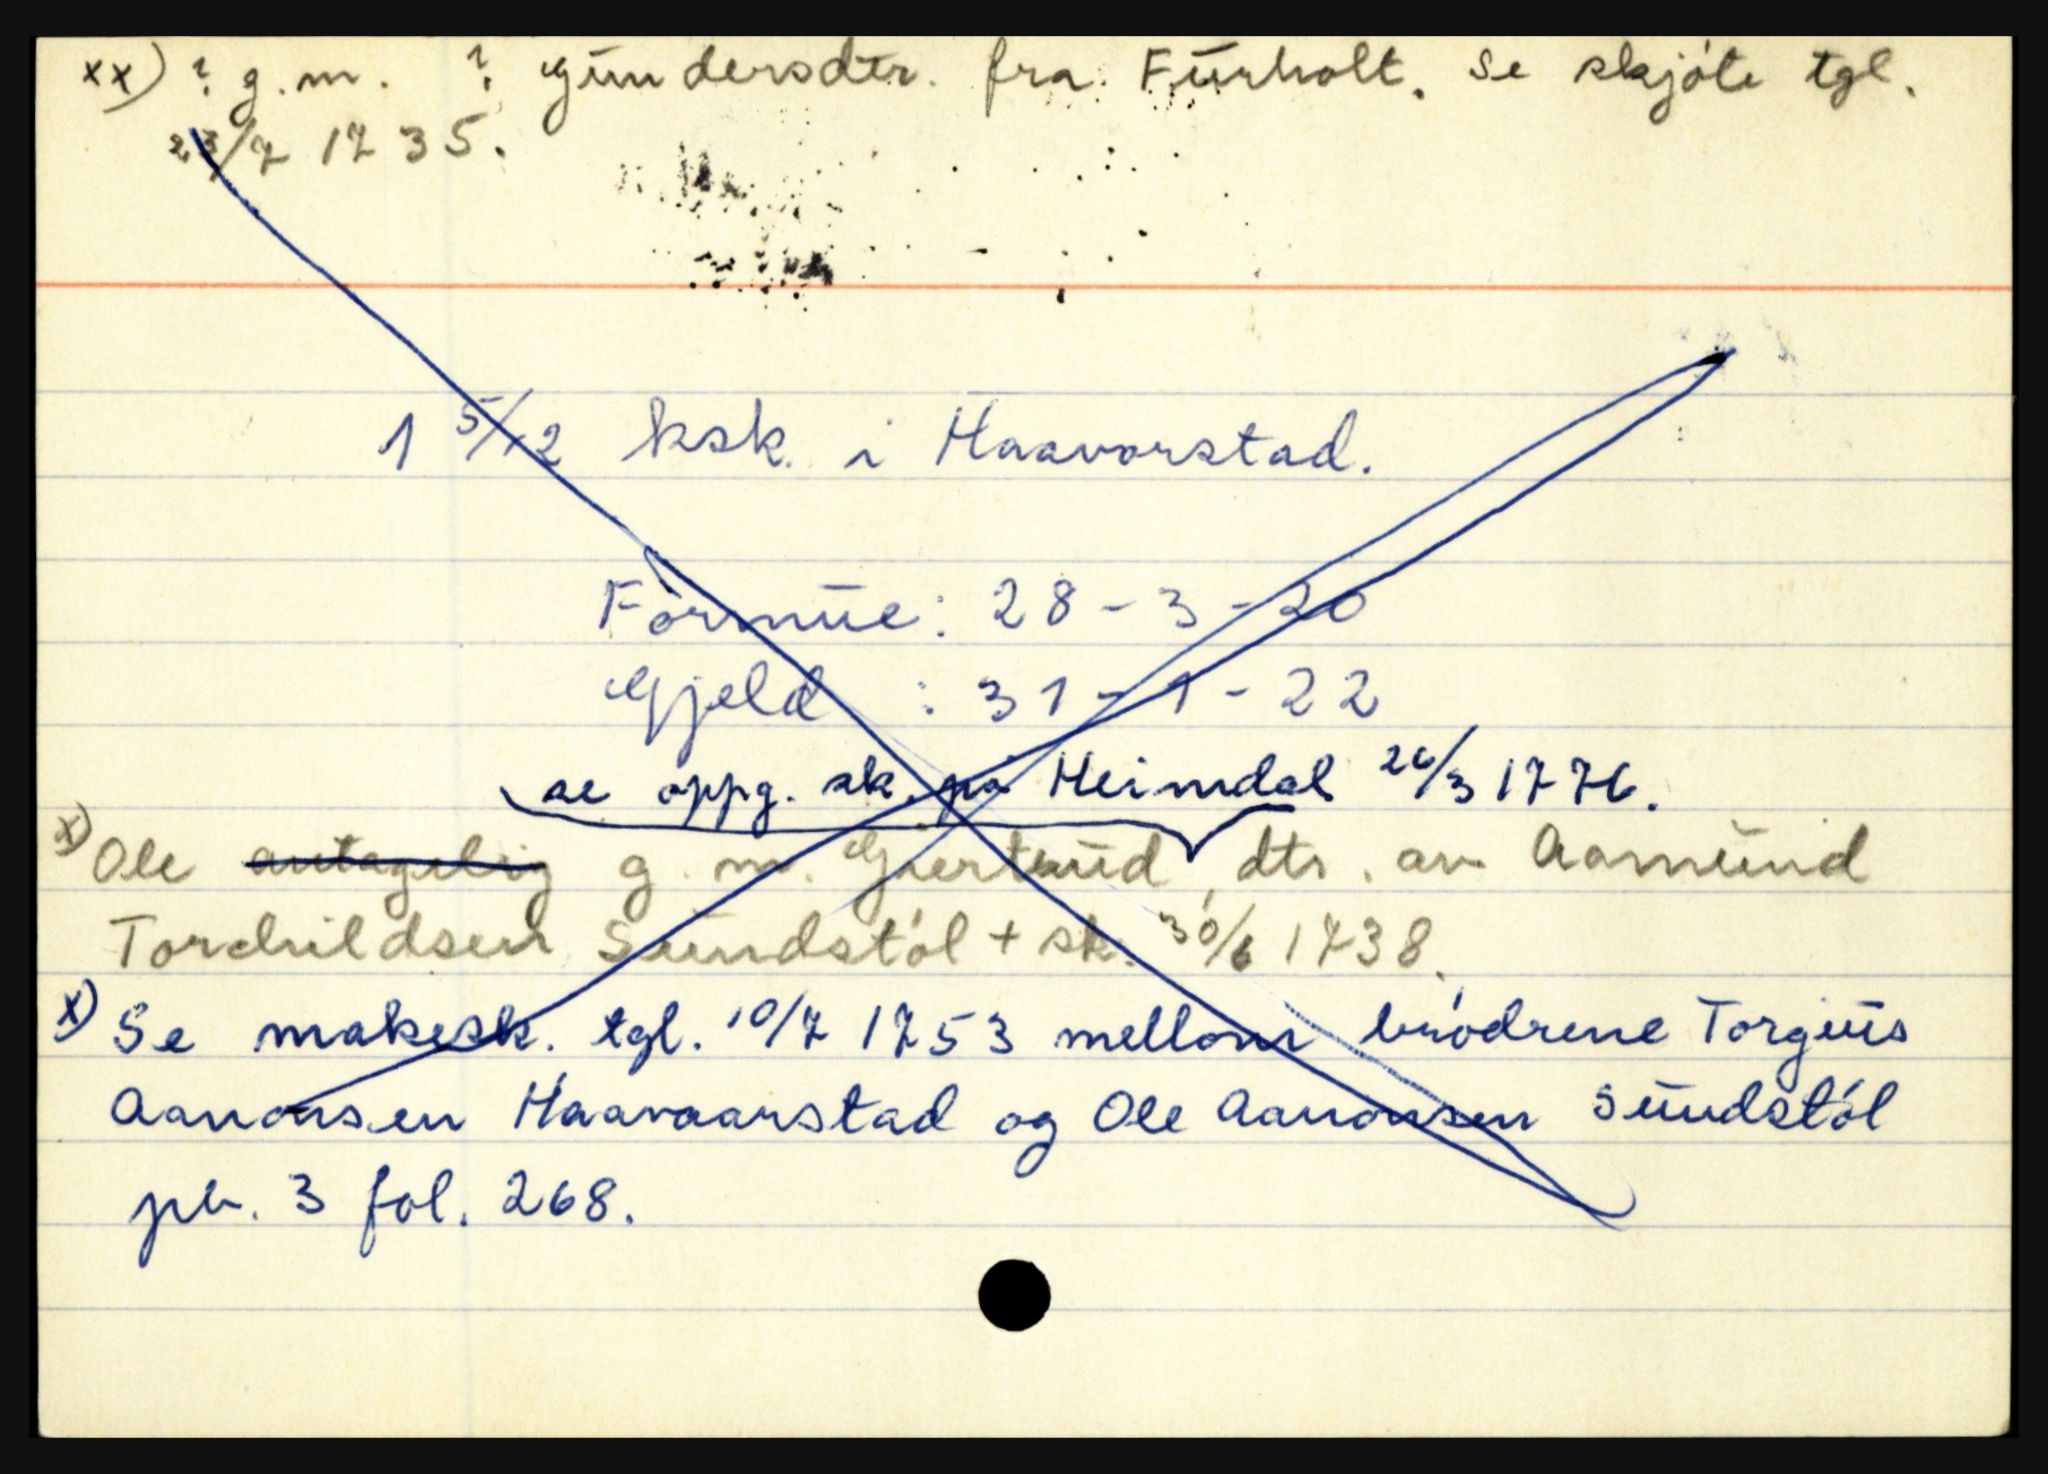 xx) ? g.m. ? Gundersdtr. fra Furholt. Se skjöte tgl.
23/7 1735.
1 5/12 ksk. i Haavorstad.
Formue: 28-3-20
Gjeld : 31-1-22
se oppg. sk. på Heimdal 26/3 1776.
x) Ole antagelig g.m. Gjertrud, dtr. av Aamund
Torchildsen Sundstöl + sk. 30/6 1738.
x) Se makesk. tgl. 10/7 1753 mellom brödrene Torgius
Aanonsen Haavaarstad og Ole Aanonsen Sundstöl
pb. 3 fol. 268.